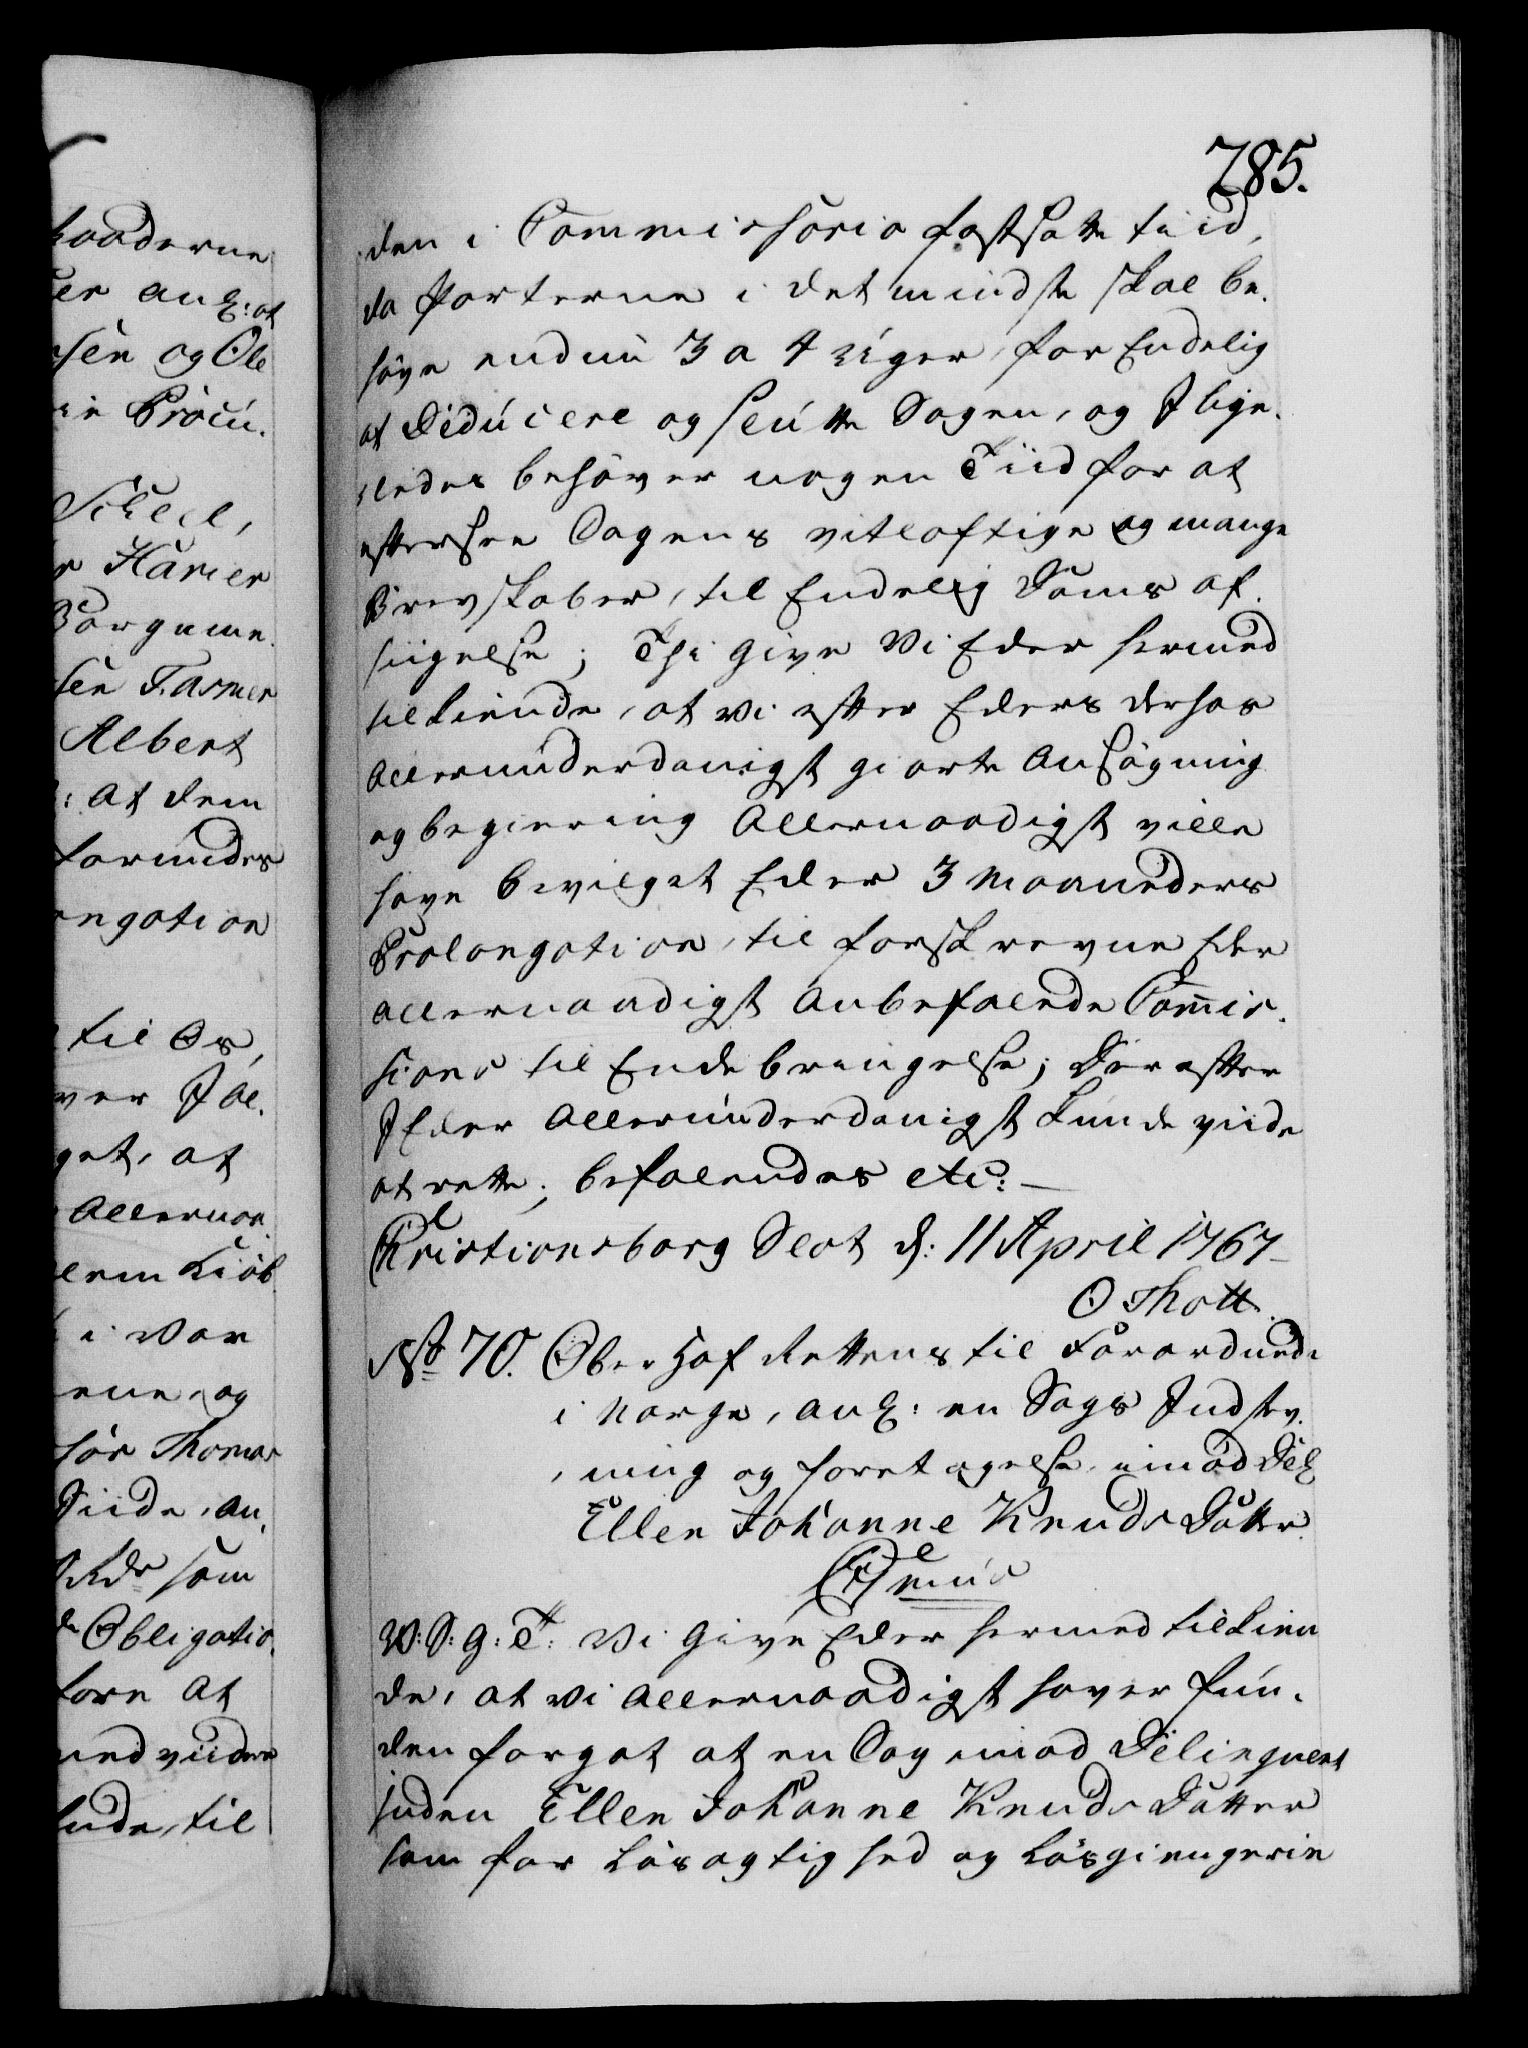 285.
den i Commissorio fastsatte tiid,
da Parterne i det mindste skal be-
høve endnu 3 a 4 Uger, for Endelig
at Deducere og slutte Sagen, og I lige-
ledes behøver nogen Tiid for at
eftersee Sagens vitløftige og mange
Brevskaber, til Endelig Doms af-
siigelse; Thi give Vi Eder hermed
tilkiende, at vi efter Eders derhos
Allerunderdanigst giorte Ansøgning
og begiering Allernaadigst ville
have bevilget Eder 3 Maaneders
Prolongation, til forskrevne Eder
allernaadigst anbefalede Com̄is-
sions til Endebringelse; Derefter
I Eder Allerunderdanigst kunde viide
at rette; befalendes etc:
Christiansborg Slot d: 11 April 1767
O Thott.
No 70. Ober Hof Rettens til Forordnede
i Norge, ang: en Sags Indstev-
ning og foretagelse imod Del:
Ellen Johanne Knuds Datter.
Chr
W: S: G: T: Vi Give Eder hermed tilkien
de, at Vi allernaadigst haver fun-
den forgot at en Sag imod Delinquent
inden Ellen Johanne Knuds Datter
som for Løsagtighed og Løsgiengerie
kaaderne
ang: at
sen og Ole
Procu-
Albert
: At dem
forundes
ongation
til Os,
ver Jøl-
get, at
Allernaa
i vor
ene, og
hør Thomas
Siide, an-
Rdr som
Obligatio-
forn At
ned viidere
til